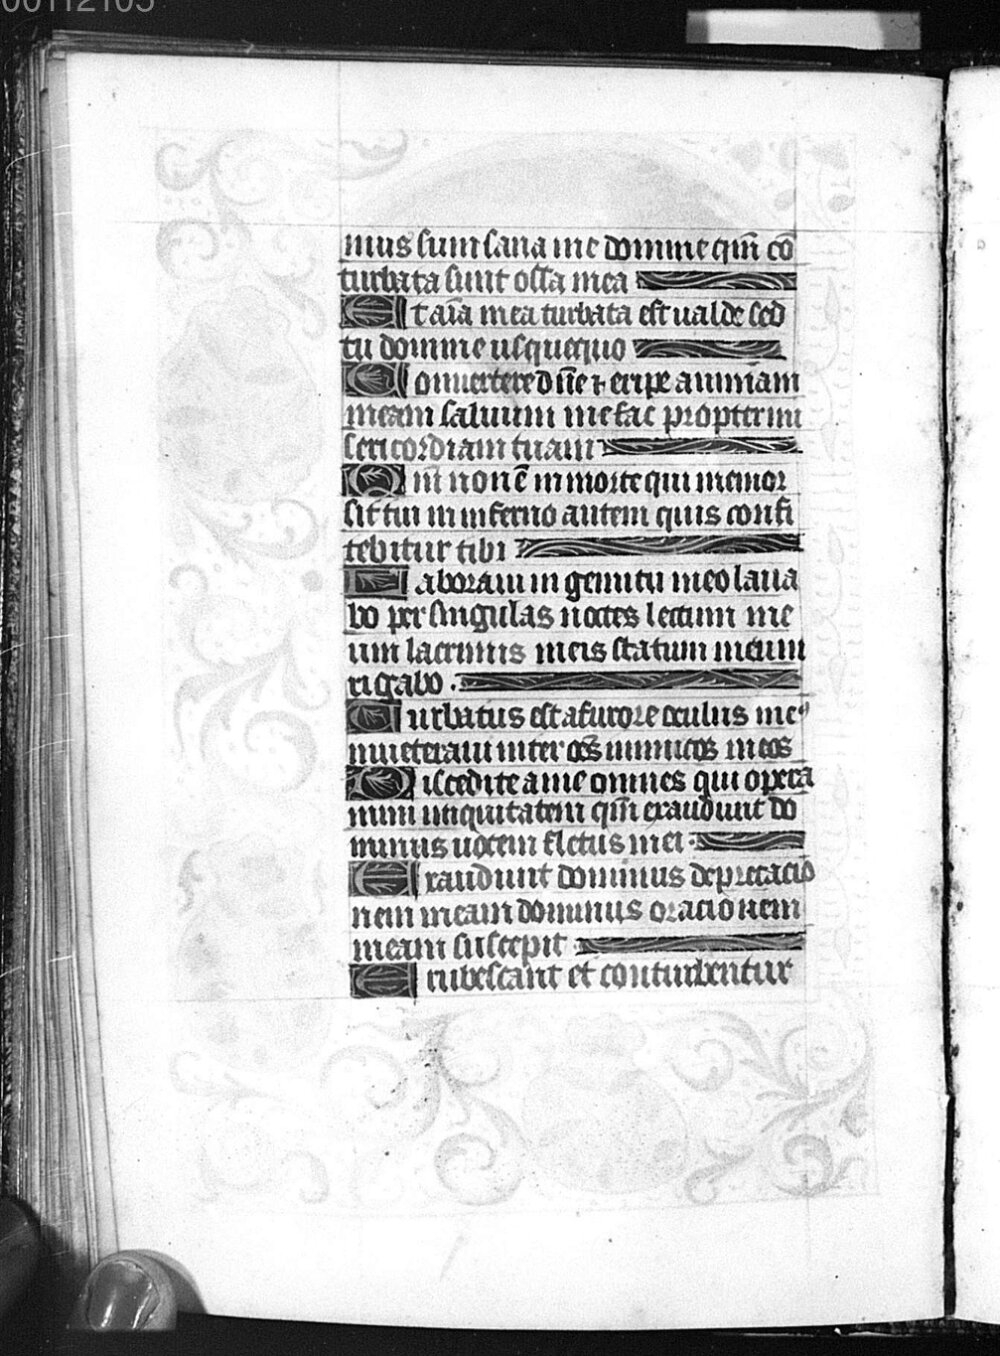 00112105
mus sum sana me domine qm̄ cō
turbata sunt ossa mea
Et aīa mea turbata est ualde sed
tu domine usquequo
Conuertere dn̄e ⁊ eripe animam
meam saluum me fac propter mi
sericordiam tuam
Qm̄ non ē in morte qui memor
sit tui in inferno autem quis confi
tebitur tibi
Laboraui in gemitu meo laua
bo per singulas noctes lectum me
um lacrimis meis stratum meum
rigabo .
Turbatus est a furore oculus meꝰ
inueteraui inter oēs inimicos meos
Discedite a me omnes qui opera
mini iniquitatem qm̄ exaudiuit do
minus uocem fletus mei .
Exaudiuit dominus deprecacio
nem meam dominus oracionem
meam suscepit
Erubescant et conturbentur